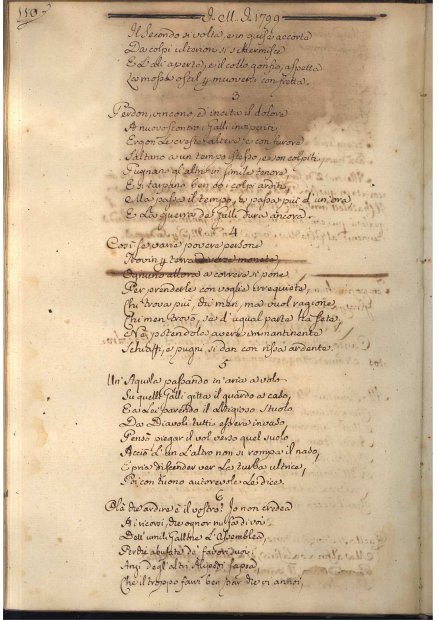 110
J. M. J. 1799
Il Secondo si volta, e in guisa accorta
Da colpi ulteriori si schermisce
E l'ali aperte, e il collo gonfio, aspetta
La mossa ostil p muoversi con fretta.
3
Perdon, vincono, ed incita il dolore
A nuovo scontro i Galli
Ergon le creste altere e con furore
Saltano a un tempo istesso, e son colpiti
Pugnan gl'altri in simile tenore
E si
Ma passa il tempo, e passa più d'un'ora
E la guerra de Galli dura ancora.
4
Così se varie povere persone
Trovin p terra monete,
Ognuno allora a correre si pone
Per prenderle con voglie irrequiete,
Chi trova più, chi men, ma vuol ragione,
Chi men trovò, se d'ugual parte
E Nò potendole avere immantinente
Schiaffi, e pugni si dan con rissa ardente.
5
Un'Aquila passando in aria a volo
Su quelli Galli gitta il guardo a caso,
E a Lei parendo il litigioso stuolo
Da Diavoli tutti essere invaso,
Pensò piegar il vol verso quel suolo
Acciò l'un l'altro non si rompa il naso,
E pria discender ver la turba ultrice,
Poi con tuono autorevole le dice.
6
Che ardire è il vostro? Io non credea
Ai ricovi, che ognor
Dell'umil l'Assemblea
Perchè abusate de' favor
Anzi degl'altri
Che il troppo farvi ben